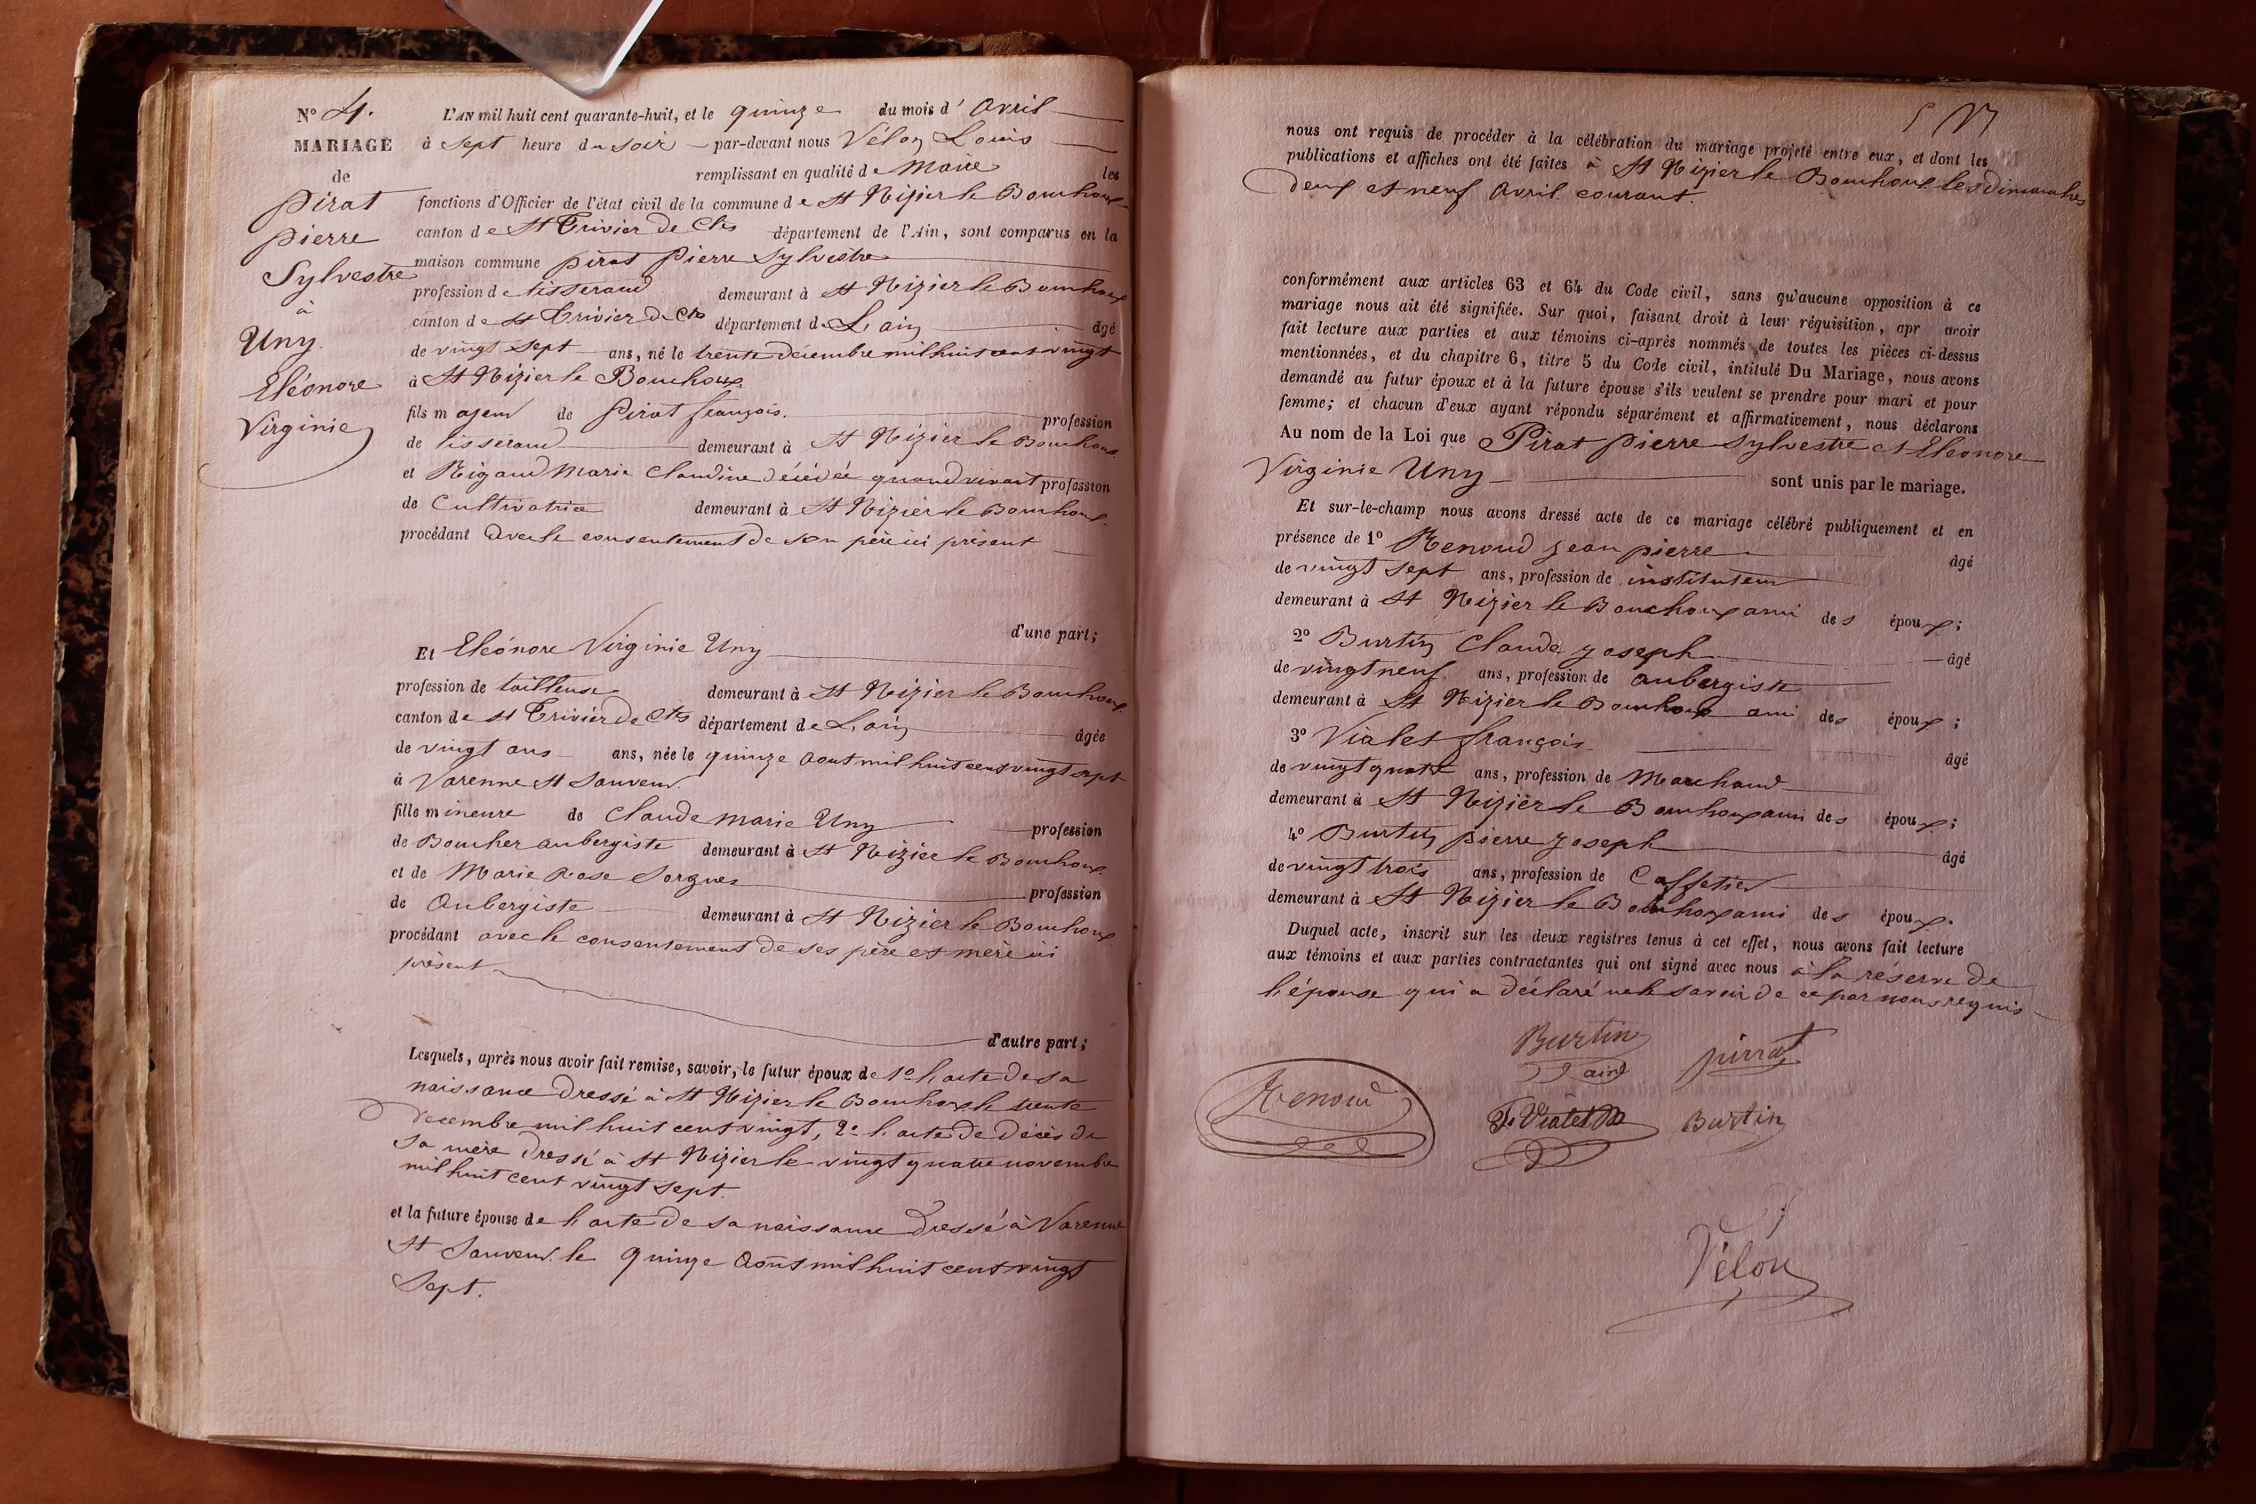 N° 4.
MARIAGE
de
Pirat
Pierre
Sylvestre
à
Uny
Eléonore
Virginie
L'AN mil huit cent quarante-huit, et le quinze du mois d' Avril
à sept heure du soir par-devant nous Vélon Louis
remplissant en qualité de Maire les
fonctions d'Officier de l'état civil de la commune de St Nizier le Bouchoux
canton de St Trivier de Cts département de l'Ain, sont comparus en la
maison commune Pirat Pierre Sylvestre
profession de tisserand demeurant à St Nizier le Bouchoux
canton de St Trivier de Cts département de L'ain âgé
de vingt sept ans, né le trente décembre mil huit cent vingt
à St Nizier le Bouchoux
fils majeur de Pirat françois. profession
de tisserand demeurant à St Nizier le Bouchoux
et Rigaud Marie Claudine décédée quand vivait profession
de Cultivatrice demeurant à St Nizier le Bouchoux.
procédant avec le consentement de son père ici présent
d'une part;
Et Eléonore Virginie Uny
profession de tailleuse demeurant à St Nizier le Bouchoux
canton de St Trivier de Cts département de L'ain âgée
de vingt ans ans, née le quinze aout mil huit cent vingt sept
à Varenne St Sauveur.
fille mineure de Claude Marie Uny profession
de Boucher aubergiste demeurant à St Nizier le Bouchoux.
et de Marie Rose Sorgues profession
de Aubergiste demeurant à St Nizier le Bouchoux
procédant avec le consentement de ses père et mère ici
présent
d'autre part;
Lesquels, après nous avoir fait remise, savoir, le futur époux de 1° l'acte de sa
naissance dressé à St Nizier le Bouchoux le trente
décembre mil huit cent vingt, 2° l'acte de décès de
sa mère dressé à St Nizier le vingt quatre novembre
mil huit cent vingt sept.
et la future épouse de l'acte de sa naissance dressé à Varenne
St Sauveur le quinze Août mil huit cent vingt
sept.
nous ont requis de procéder à la célébration du mariage projeté entre eux, et dont les
publications et affiches ont été faites à St Nizier le Bouchoux les dimanches
deux et neuf avril courant.
conformément aux articles 63 et 64 du Code civil, sans qu'aucune opposition à ce
mariage nous ait été signifiée. Sur quoi, faisant droit à leur réquisition, apr avoir
fait lecture aux parties et aux témoins ci-après nommés de toutes les pièces ci-dessus
mentionnées, et du chapitre 6, titre 5 du Code civil, intitulé Du Mariage, nous avons
demandé au futur époux et à la future épouse s'ils veulent se prendre pour mari et pour
femme; et chacun d'eux ayant répondu séparément et affirmativement, nous déclarons
Au nom de la Loi que Pirat Pierre Sylvestre et Eléonore
Virginie Uny sont unis par le mariage.
Et sur-le-champ nous avons dressé acte de ce mariage célébré publiquement et en
présence de 1° Renoud Jean pierre âgé
de vingt sept ans, profession de instituteur
demeurant à St Nizier le Bouchoux ami des époux;
2° Burtin Claude Joseph âgé
de vingt neuf ans, profession de aubergiste
demeurant à St Nizier le Bouchoux ami des époux;
3° Vialet françois âgé
de vingt quatre ans, profession de Marchand
demeurant à St Nizier le Bouchoux ami des époux;
4° Burtin pierre Joseph âgé
de vingt trois ans, profession de Caffetier
demeurant à St Nizier le Bouchoux ami des époux.
Duquel acte, inscrit sur les deux registres tenus à cet effet, nous avons fait lecture
aux témoins et aux parties contractantes qui ont signé avec nous à la réserve de
l'épouse qui a déclaré ne le savoir de ce par nous requis
Burtin pirrat
Renoud
F. Vialet Burtin
Vélon